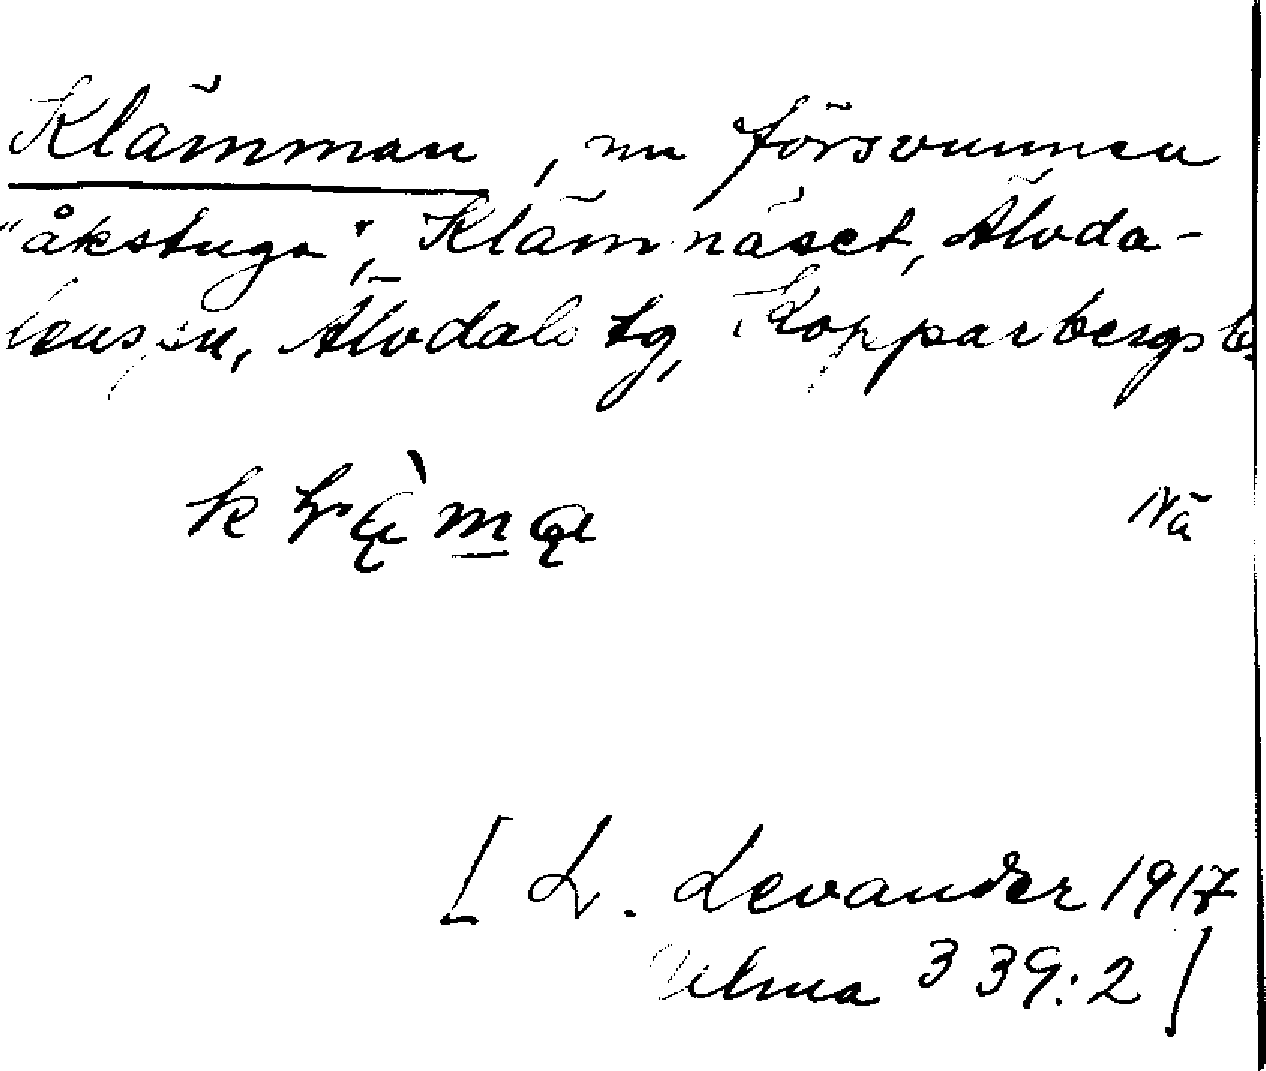 Klämman, nu försvunnen
"åkstuga", Klämnäset, Älvda-
lens sn, Älvdals tg, Kopparbergs l.
Nä
[L. Levander 1917
Ulma 339:2]